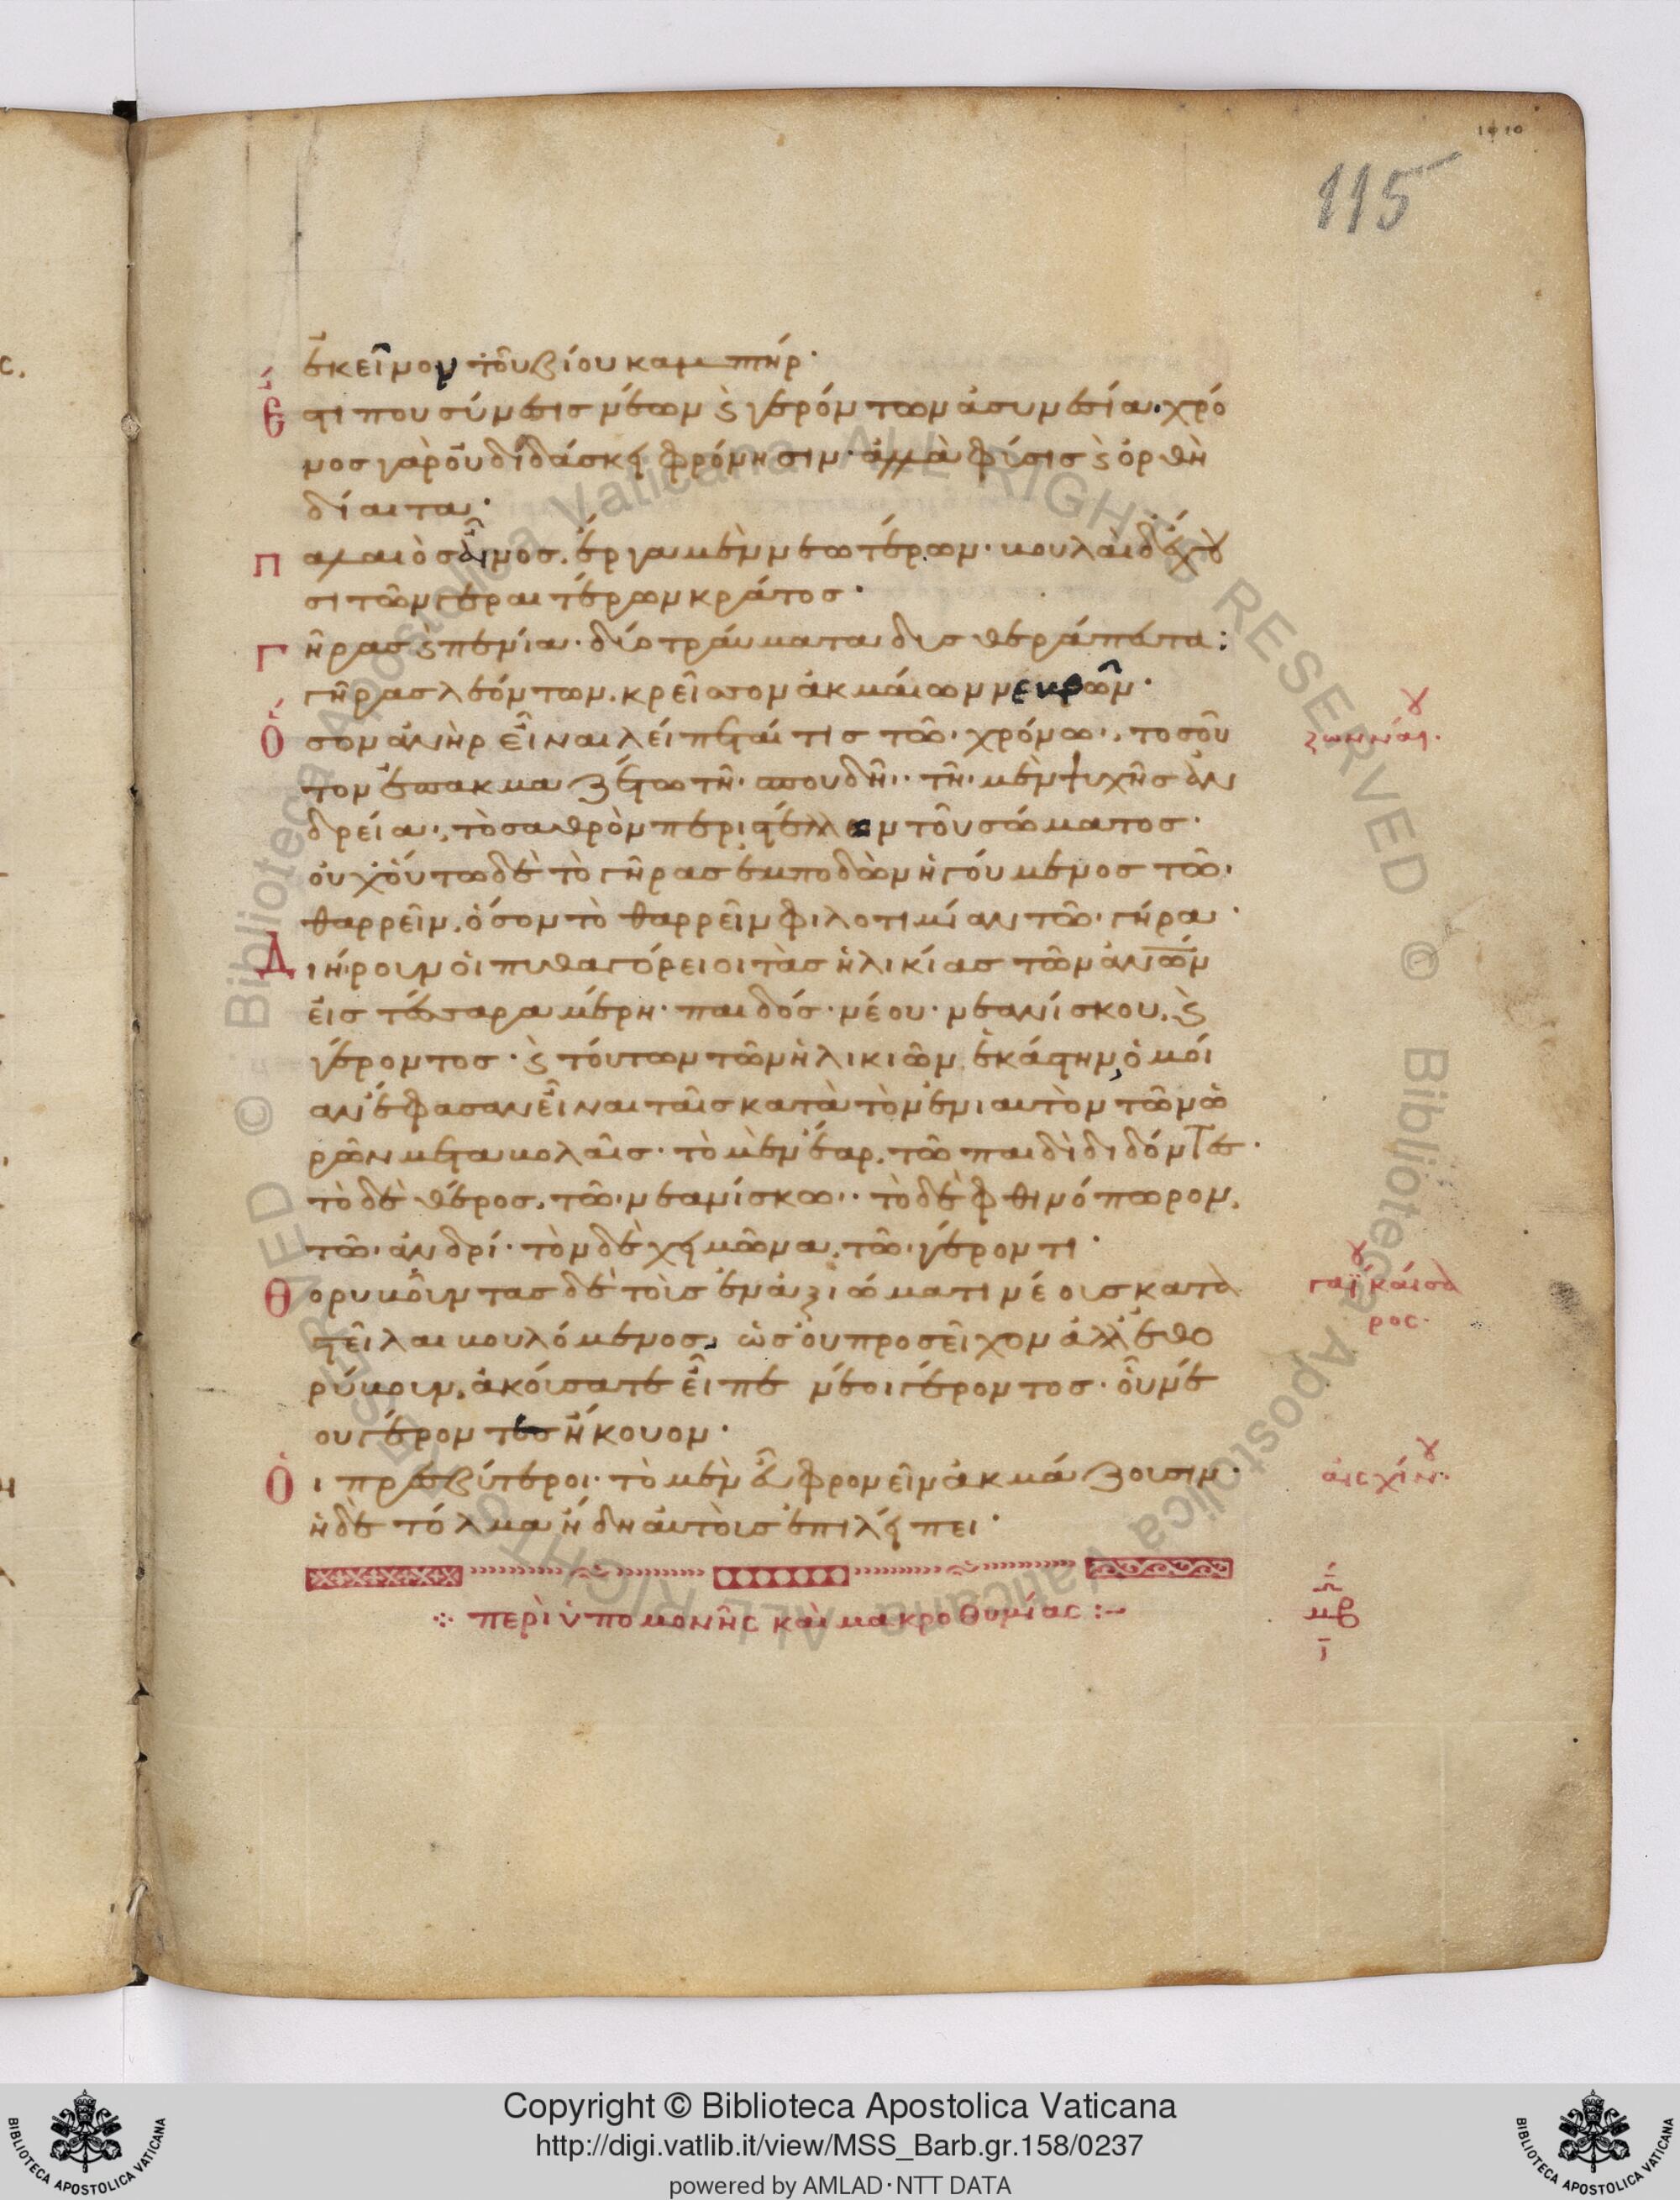 1410
115
ἐκεῖνον τοῦ βίου καμπτήρ·
Ἔστι που σύνεσις νέων ϗ γερόντων ἀσυνεσία· χρό
νος γὰρ οὐ διδάσκει φρόνησιν· ἀλλὰ φύσις ϗ ὀρθὴ
δίαιτα·
Παλαιὸς αἶνος, ἔργα μὲν νεωτέρων· βουλαὶ δ' ἔχου
σι τῶν γεραιτέρων κράτος·
Γῆρας ϗ πενία· δύο τραύματα δυσθεράπευτα:
γῆρας λεόντων, κρεῖσσον ἀκμαίων νευρῶν·
Ὅσον ἀνὴρ εἶναι λείπεταί τις τῶ χρόνω, τοσοῦ
τον ἐπακμαζέτω τῆ σπουδῆ· τῆ μὲν ψυχῆς ἀν
δρεία, τὸ σαθρὸν περιστέλλων τοῦ σώματος·
οὐχ οὕτω δὲ τὸ γῆρας ἐμποδὼν ἡγούμενος τῶ
θαρρεῖν, ὅσον τὸ θαρρεῖν φιλοτιμίαν τῶ γήρα·
Διήρουν οἱ πυθαγόρειοι τὰς ἡλικίας τῶν ἀνων
εἰς τέσσαρα μέρη· παιδός· νέου· νεανίσκου, ϗ
γέροντος· ϗ τούτων τῶν ἡλικιῶν ἑκάστην, ὁμοί
αν ἔφασαν εἶναι ταῖς κατὰ τὸν ἐνιαυτὸν τῶν ὡ
ρῶν μεταβολαῖς· τὸ μὲν ἔαρ, τῶ παιδὶ διδόντες·
τὸ δὲ θέρος, τῶ νεανίσκω· τὸ δὲ φθινόπωρον,
τῶ ἀνδρί· τὸν δὲ χειμῶνα, τῶ γέροντι·
Θορυβοῦντας δὲ τοὺς ἐν ἀξιώματι νέους κατα
στεῖλαι βουλόμενος, ὡς οὐ προσεῖχον ἀλλ' ἐθο
ρύβουν, ἀκούσατε εἶπε νέοι γέροντος· οὗ νέ
ου γέροντες ἤκουον·
Οἱ πρεσβύτεροι· τὸ μὲν εὖ φρονεῖν ἀκμάζουσιν·
ἡ δὲ τόλμα ἤδη αὐτοὺς ἐπιλείπει·
περὶ ὑπομονῆς καὶ μακροθυμίας :-
γαΐου καίσα
ρος·
αἰσχίνου·
© Biblioteca Apostolica Vaticana ALL RIGHTS RESERVED
Copyright © Biblioteca Apostolica Vaticana
http://digi.vatlib.it/view/MSS_Barb.gr.158/0237
powered by AMLAD·NTT DATA
BIBLIOTECA APOSTOLICA VATICANA
BIBLIOTECA APOSTOLICA VATICANA